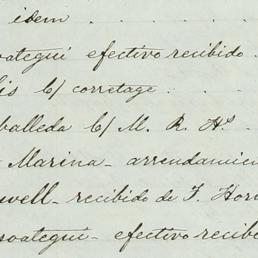 idem
oategui efectivo recibido
is c/ corretage
balleda c/ M. R. Hs.
Marina - arrendamien
well - recibido de J. Hor
soategui - efectivo recib